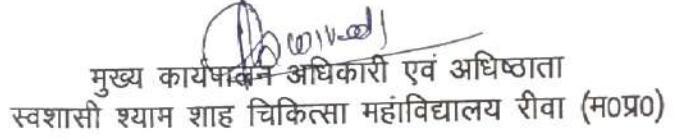 मुख्य कार्यपालन अधिकारी एवं अधिष्ठाता
स्वशासी श्याम शाह चिकित्सा महांविद्यालय रीवा (म0प्र0)